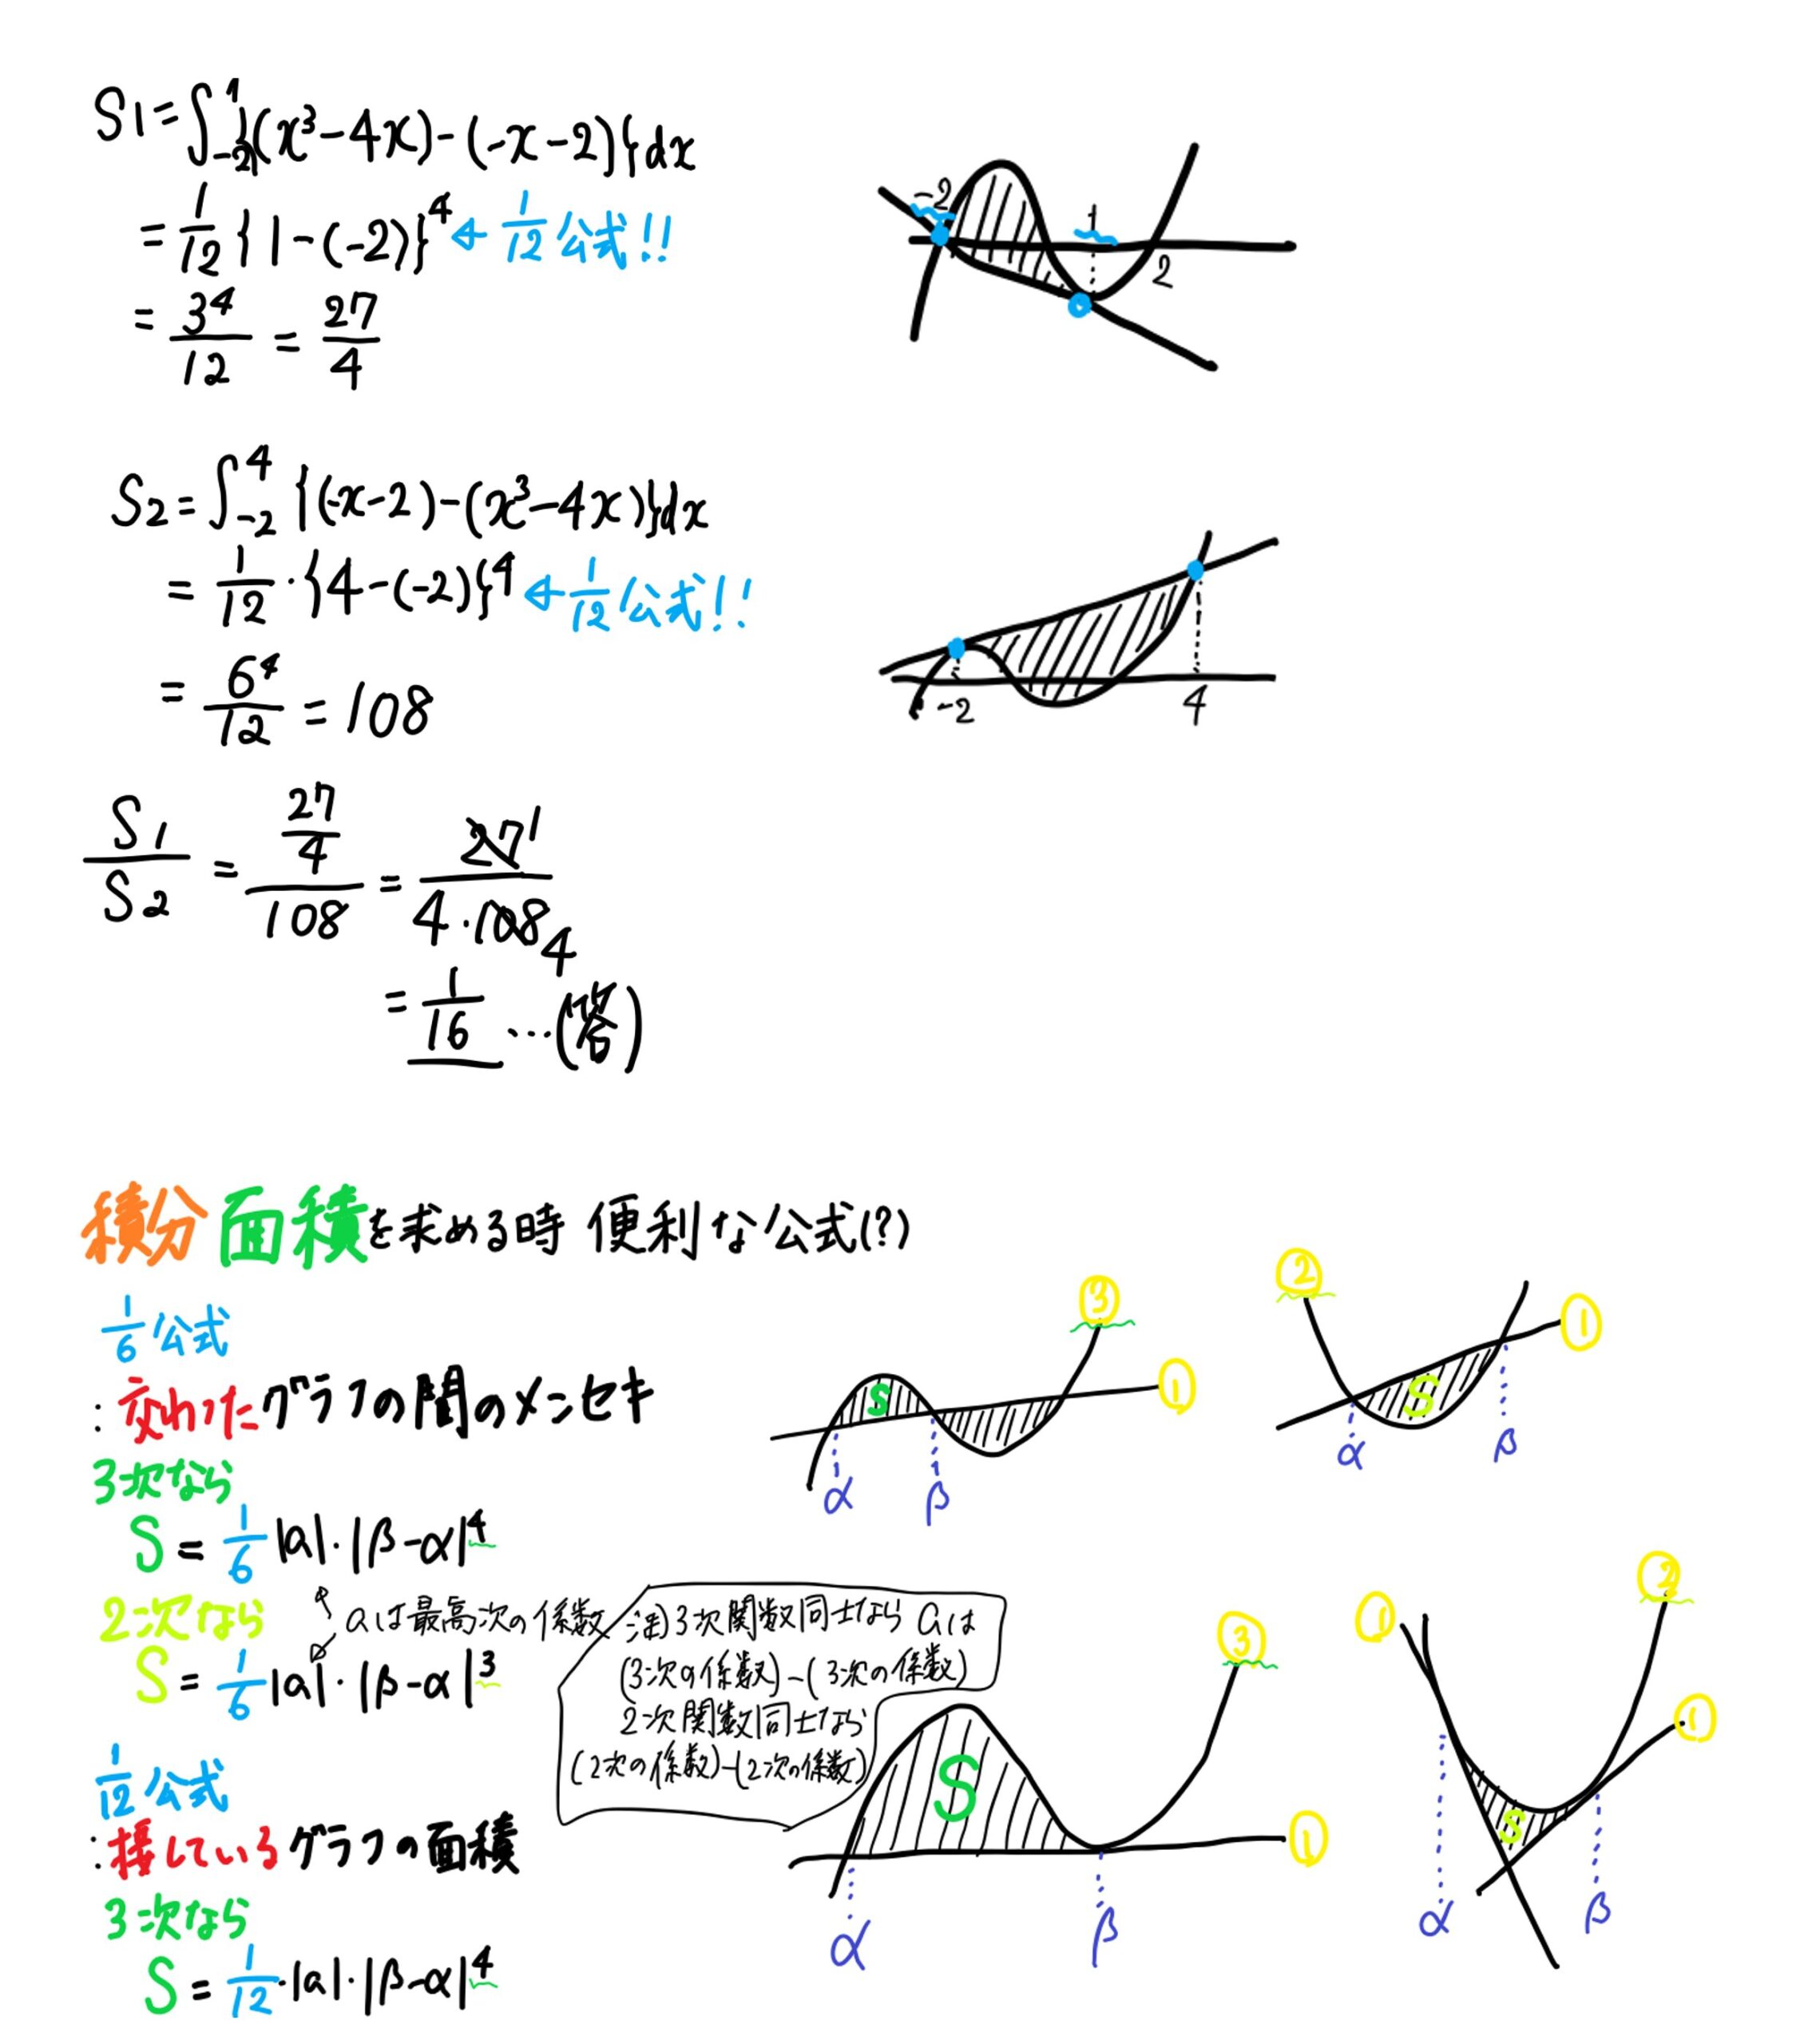 S1=∫_{-2}^{1}{(x³-4x)-(-x-2)}dx
=1/12{1-(-2)}⁴ ← 1/12公式!!
=3⁴/12=27/4
-2
1
2
S2=∫_{-2}^{4}{(-x-2)-(x³-4x)}dx
=1/12・{4-(-2)}⁴ ← 1/12公式!!
=6⁴/12=108
-2
4
S1/S2=(27/4)/108=27 1/4・108 4
=1/16 …(答)
積分 面積を求める時 便利な公式(?)
1/6公式
:交わったグラフの間のメンセキ
3次なら
S=1/6|a|・|β-α|⁴
aは最高次の係数
2次なら
S=1/6|a|・|β-α|³
注)3次関数同士なら aは
(3次の係数)-(3次の係数)
2次関数同士なら
(2次の係数)-(2次の係数)
S
③
①
α
β
②
①
S
α
β
1/12公式
:接しているグラフの面積
3次なら
S=1/12・|a|・|β-α|⁴
S
③
①
α
β
①
②
①
S
α
β